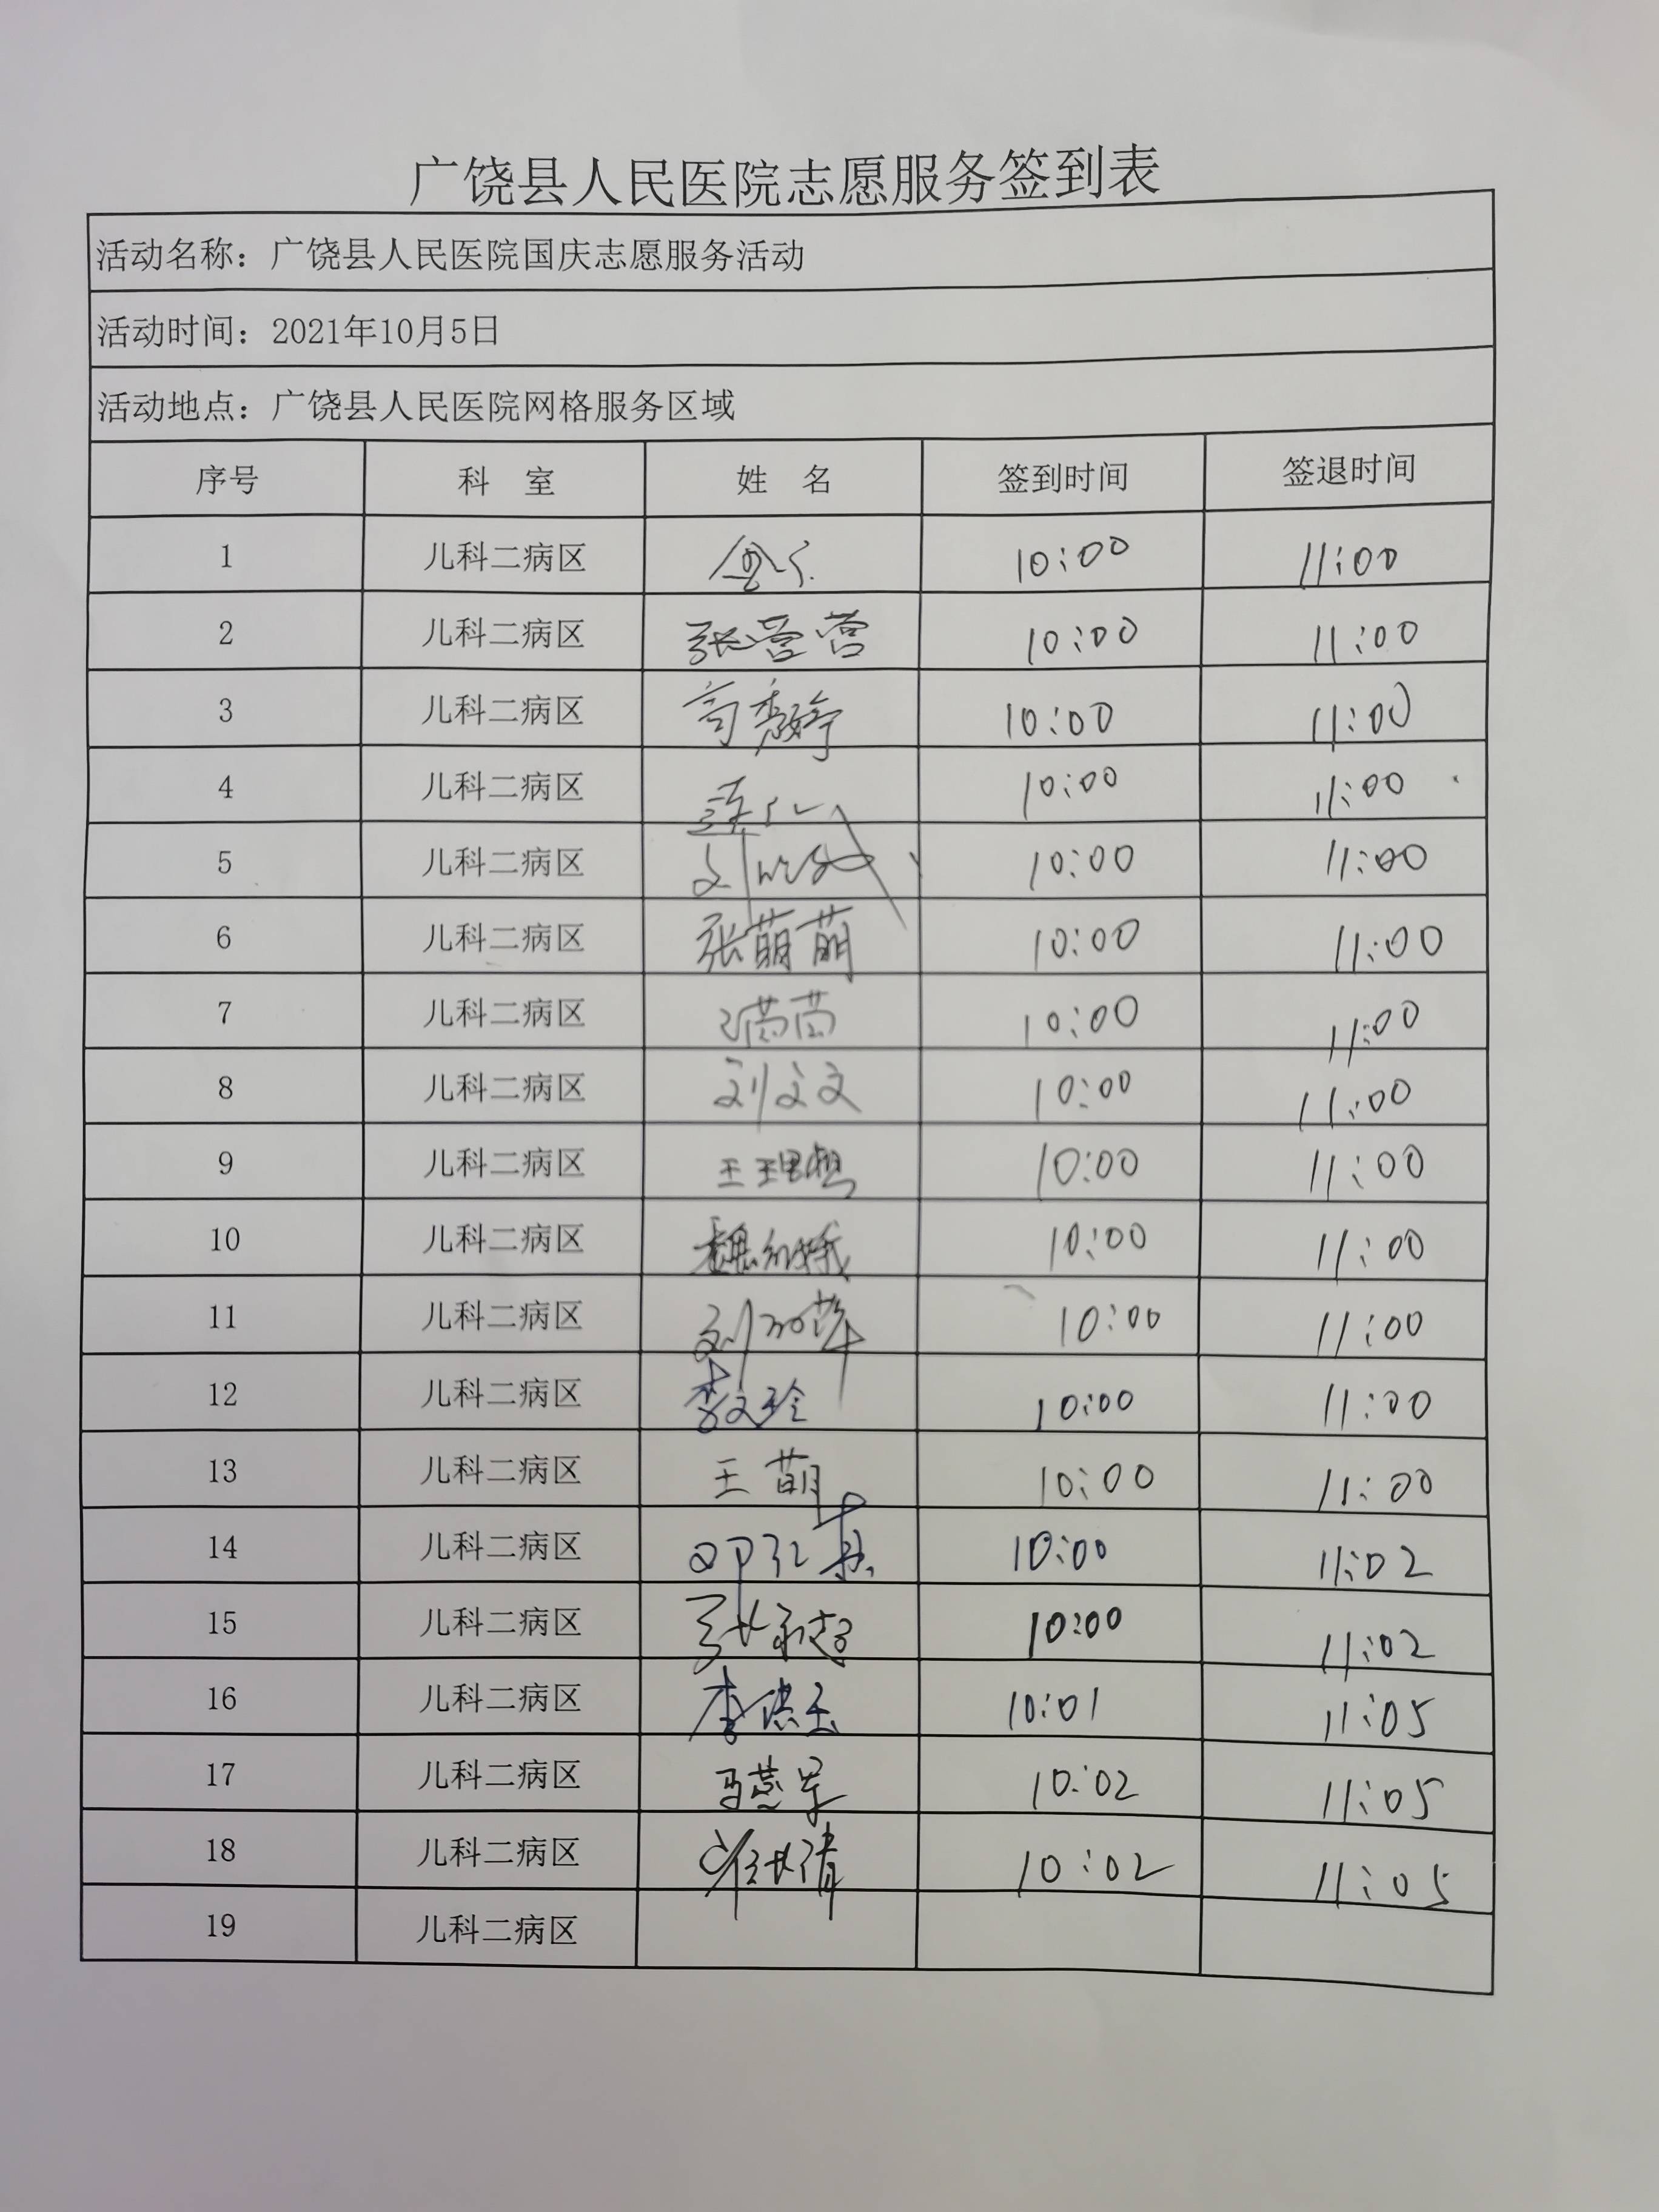 广饶县人民医院志愿服务签到表
活动名称：广饶县人民医院国庆志愿服务活动
活动时间：2021年10月5日
活动地点：广饶县人民医院网格服务区域
序号 科 室 姓 名 签到时间 签退时间
1 儿科二病区 10:00 11:00
2 儿科二病区 张营营 10:00 11:00
3 儿科二病区 10:00 11:00
4 儿科二病区 10:00 11:00
5 儿科二病区 10:00 11:00
6 儿科二病区 张萌萌 10:00 11:00
7 儿科二病区 10:00 11:00
8 儿科二病区 刘文文 10:00 11:00
9 儿科二病区 10:00 11:00
10 儿科二病区 10:00 11:00
11 儿科二病区 10:00 11:00
12 儿科二病区 李文玲 10:00 11:00
13 儿科二病区 王萌 10:00 11:00
14 儿科二病区 10:00 11:02
15 儿科二病区 10:00 11:02
16 儿科二病区 10:01 11:05
17 儿科二病区 10:02 11:05
18 儿科二病区 10:02 11:05
19 儿科二病区